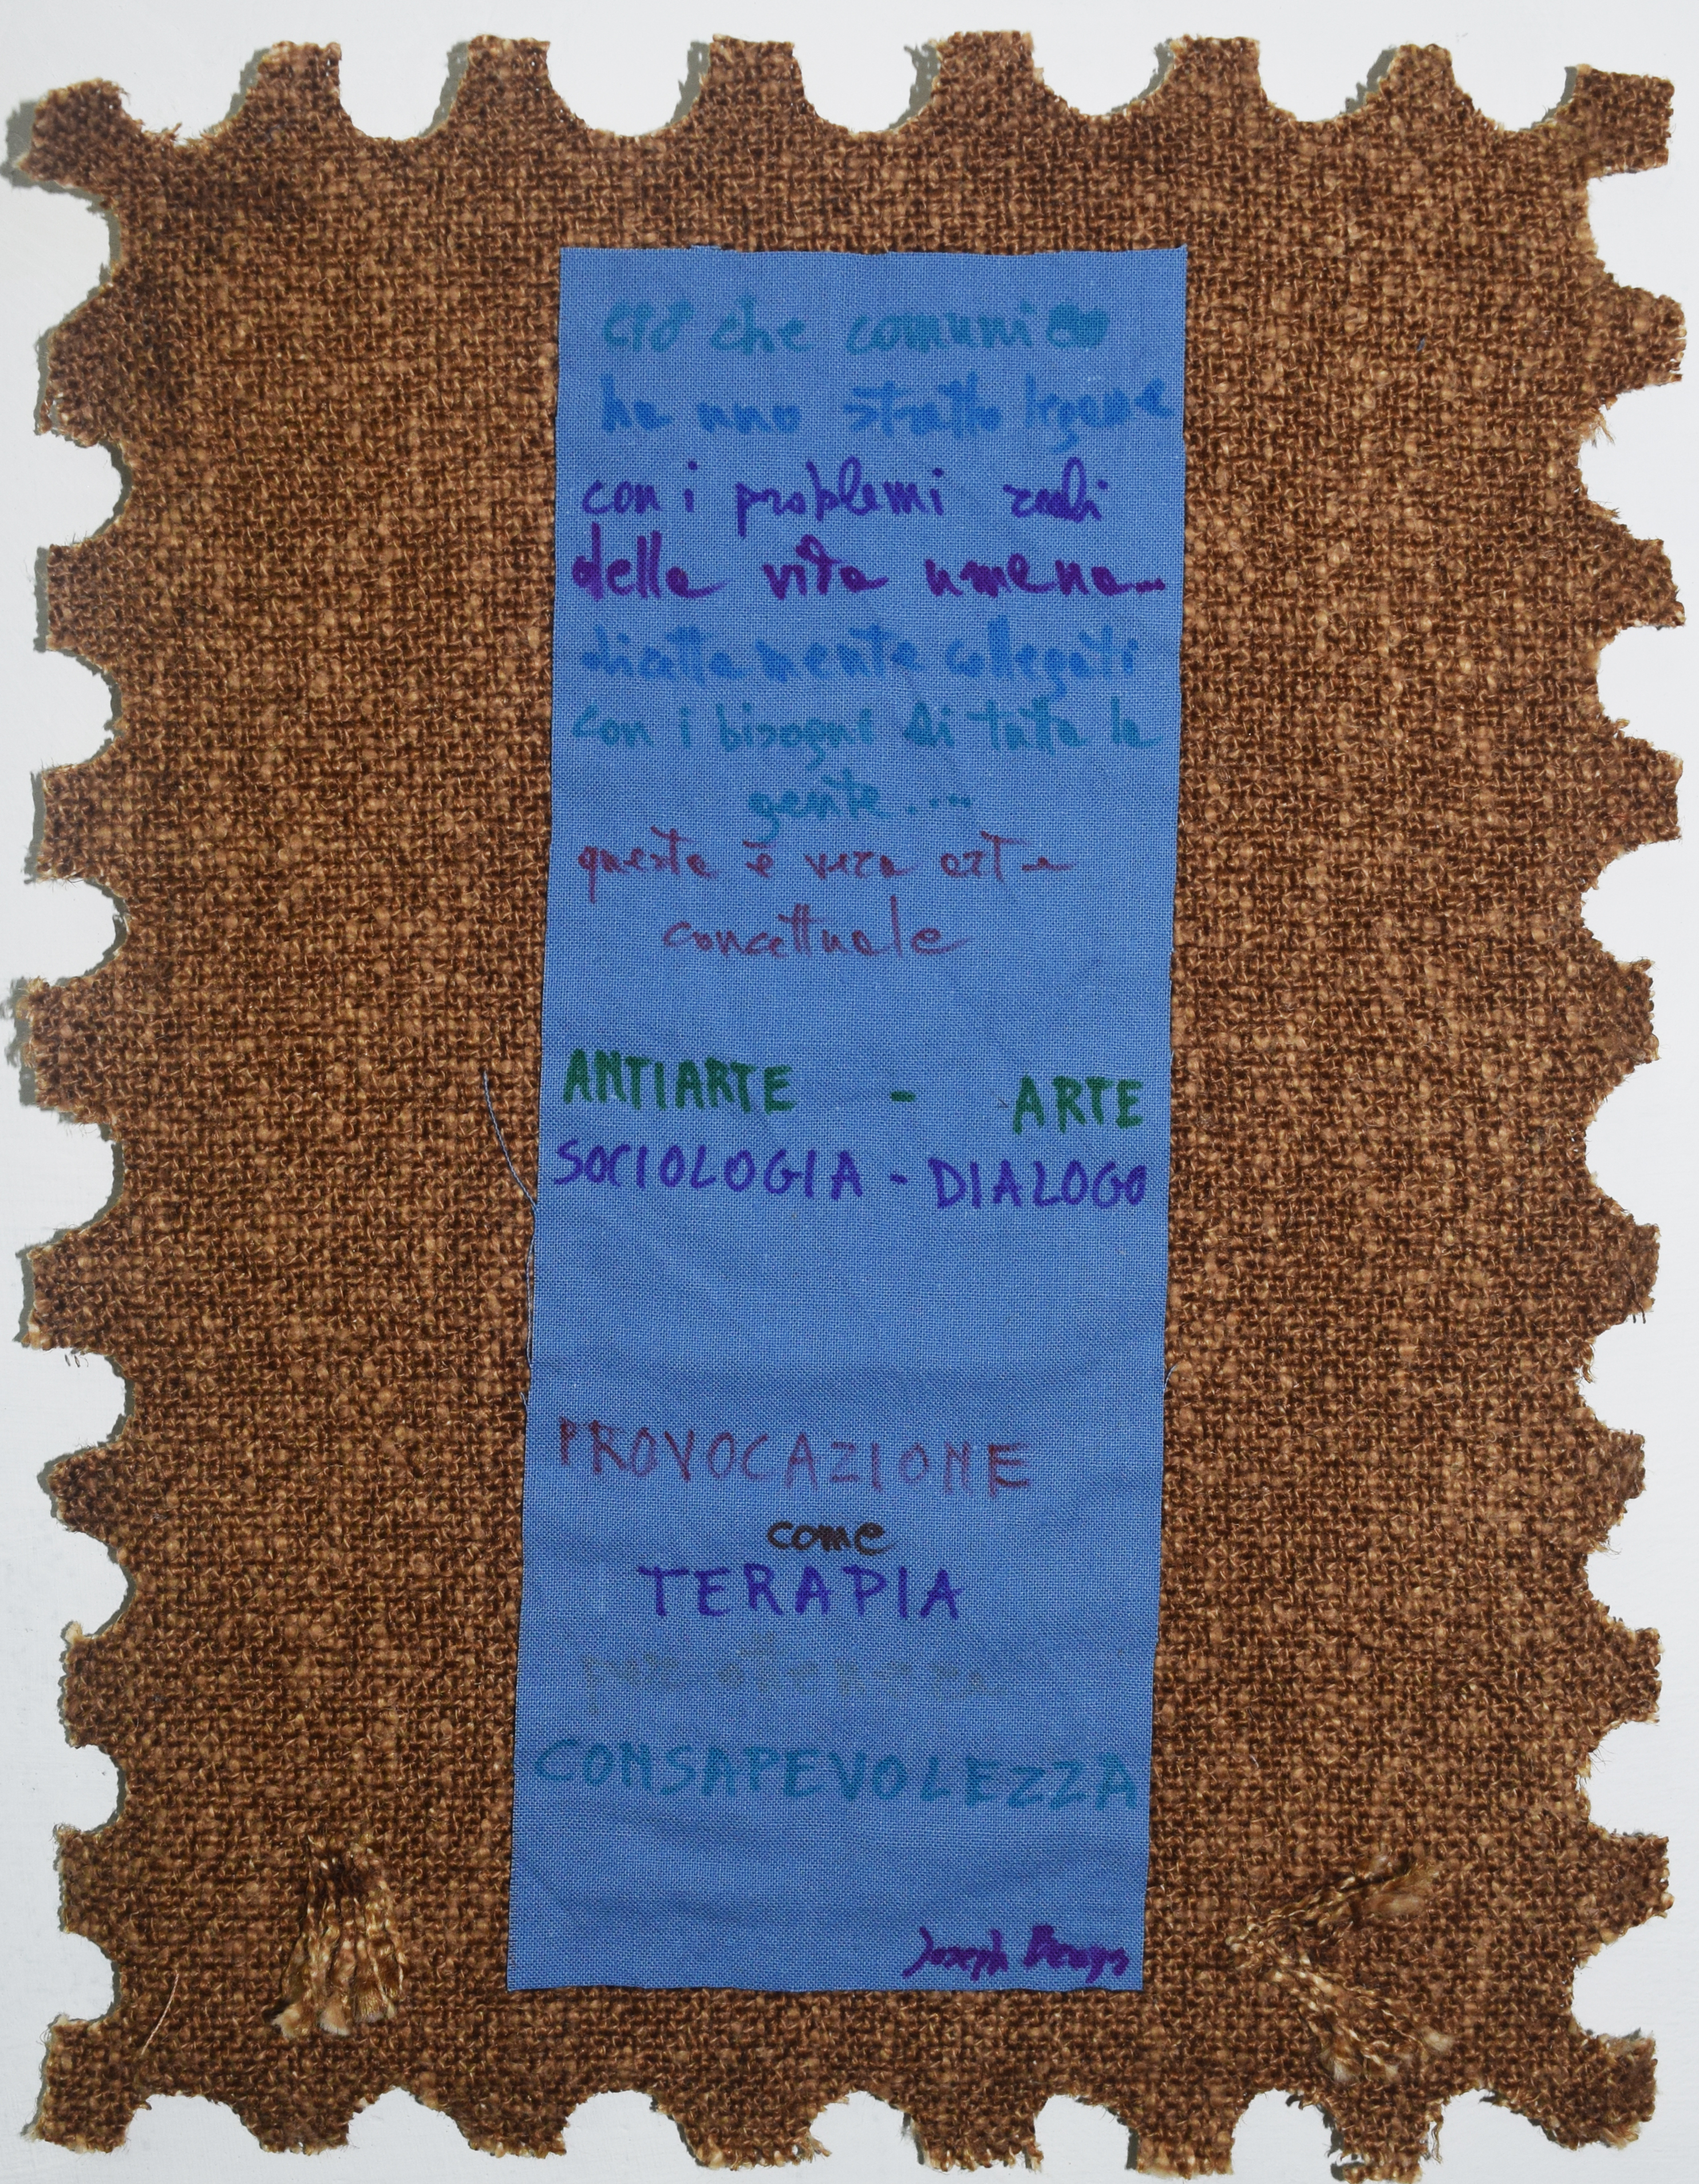 ciò che comunico
ha uno stretto legame
con i problemi reali
della vita umana...
direttamente collegati
con i bisogni di tutta la
gente....
questa è vera arte
concettuale
ANTIARTE - ARTE
SOCIOLOGIA - DIALOGO
PROVOCAZIONE
come
TERAPIA
per ottenere
CONSAPEVOLEZZA
Joseph Beuys